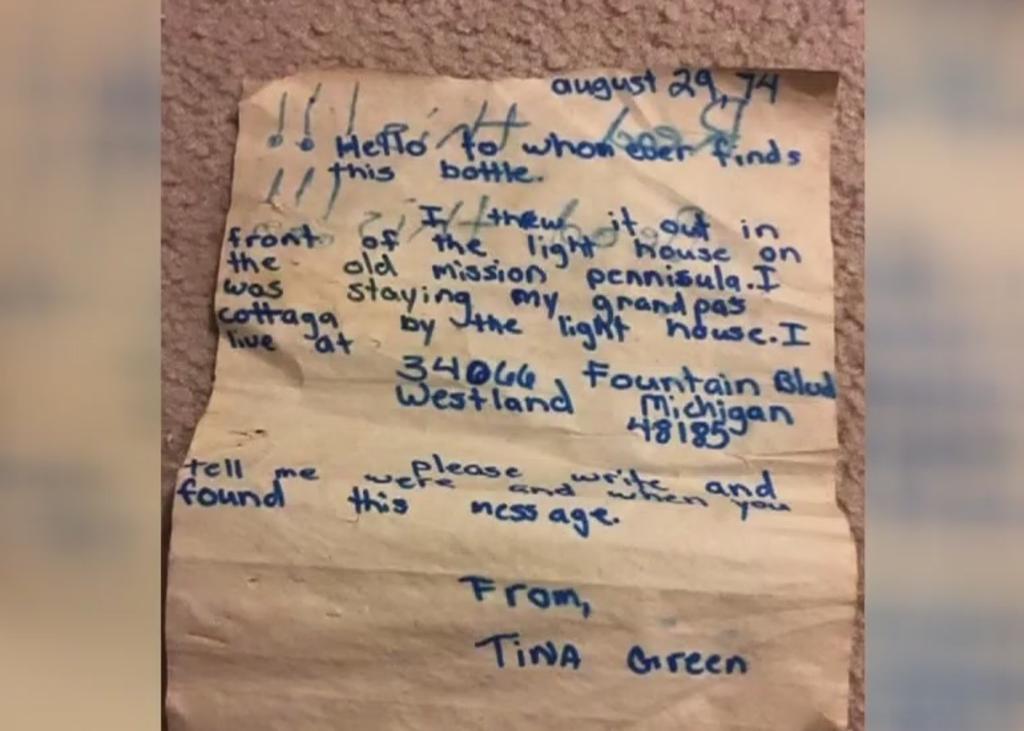 august 29, 74
!!! Hello to whom ever finds
this bottle.
I thew it out in
front of the light house on
the old mission pennisula. I
was staying my grandpas
cottaga by the light house. I
live at
34066 Fountain Blvd
Westland Michigan
48185
please write and
tell me were and when you
found this message.
From,
TiNA Green